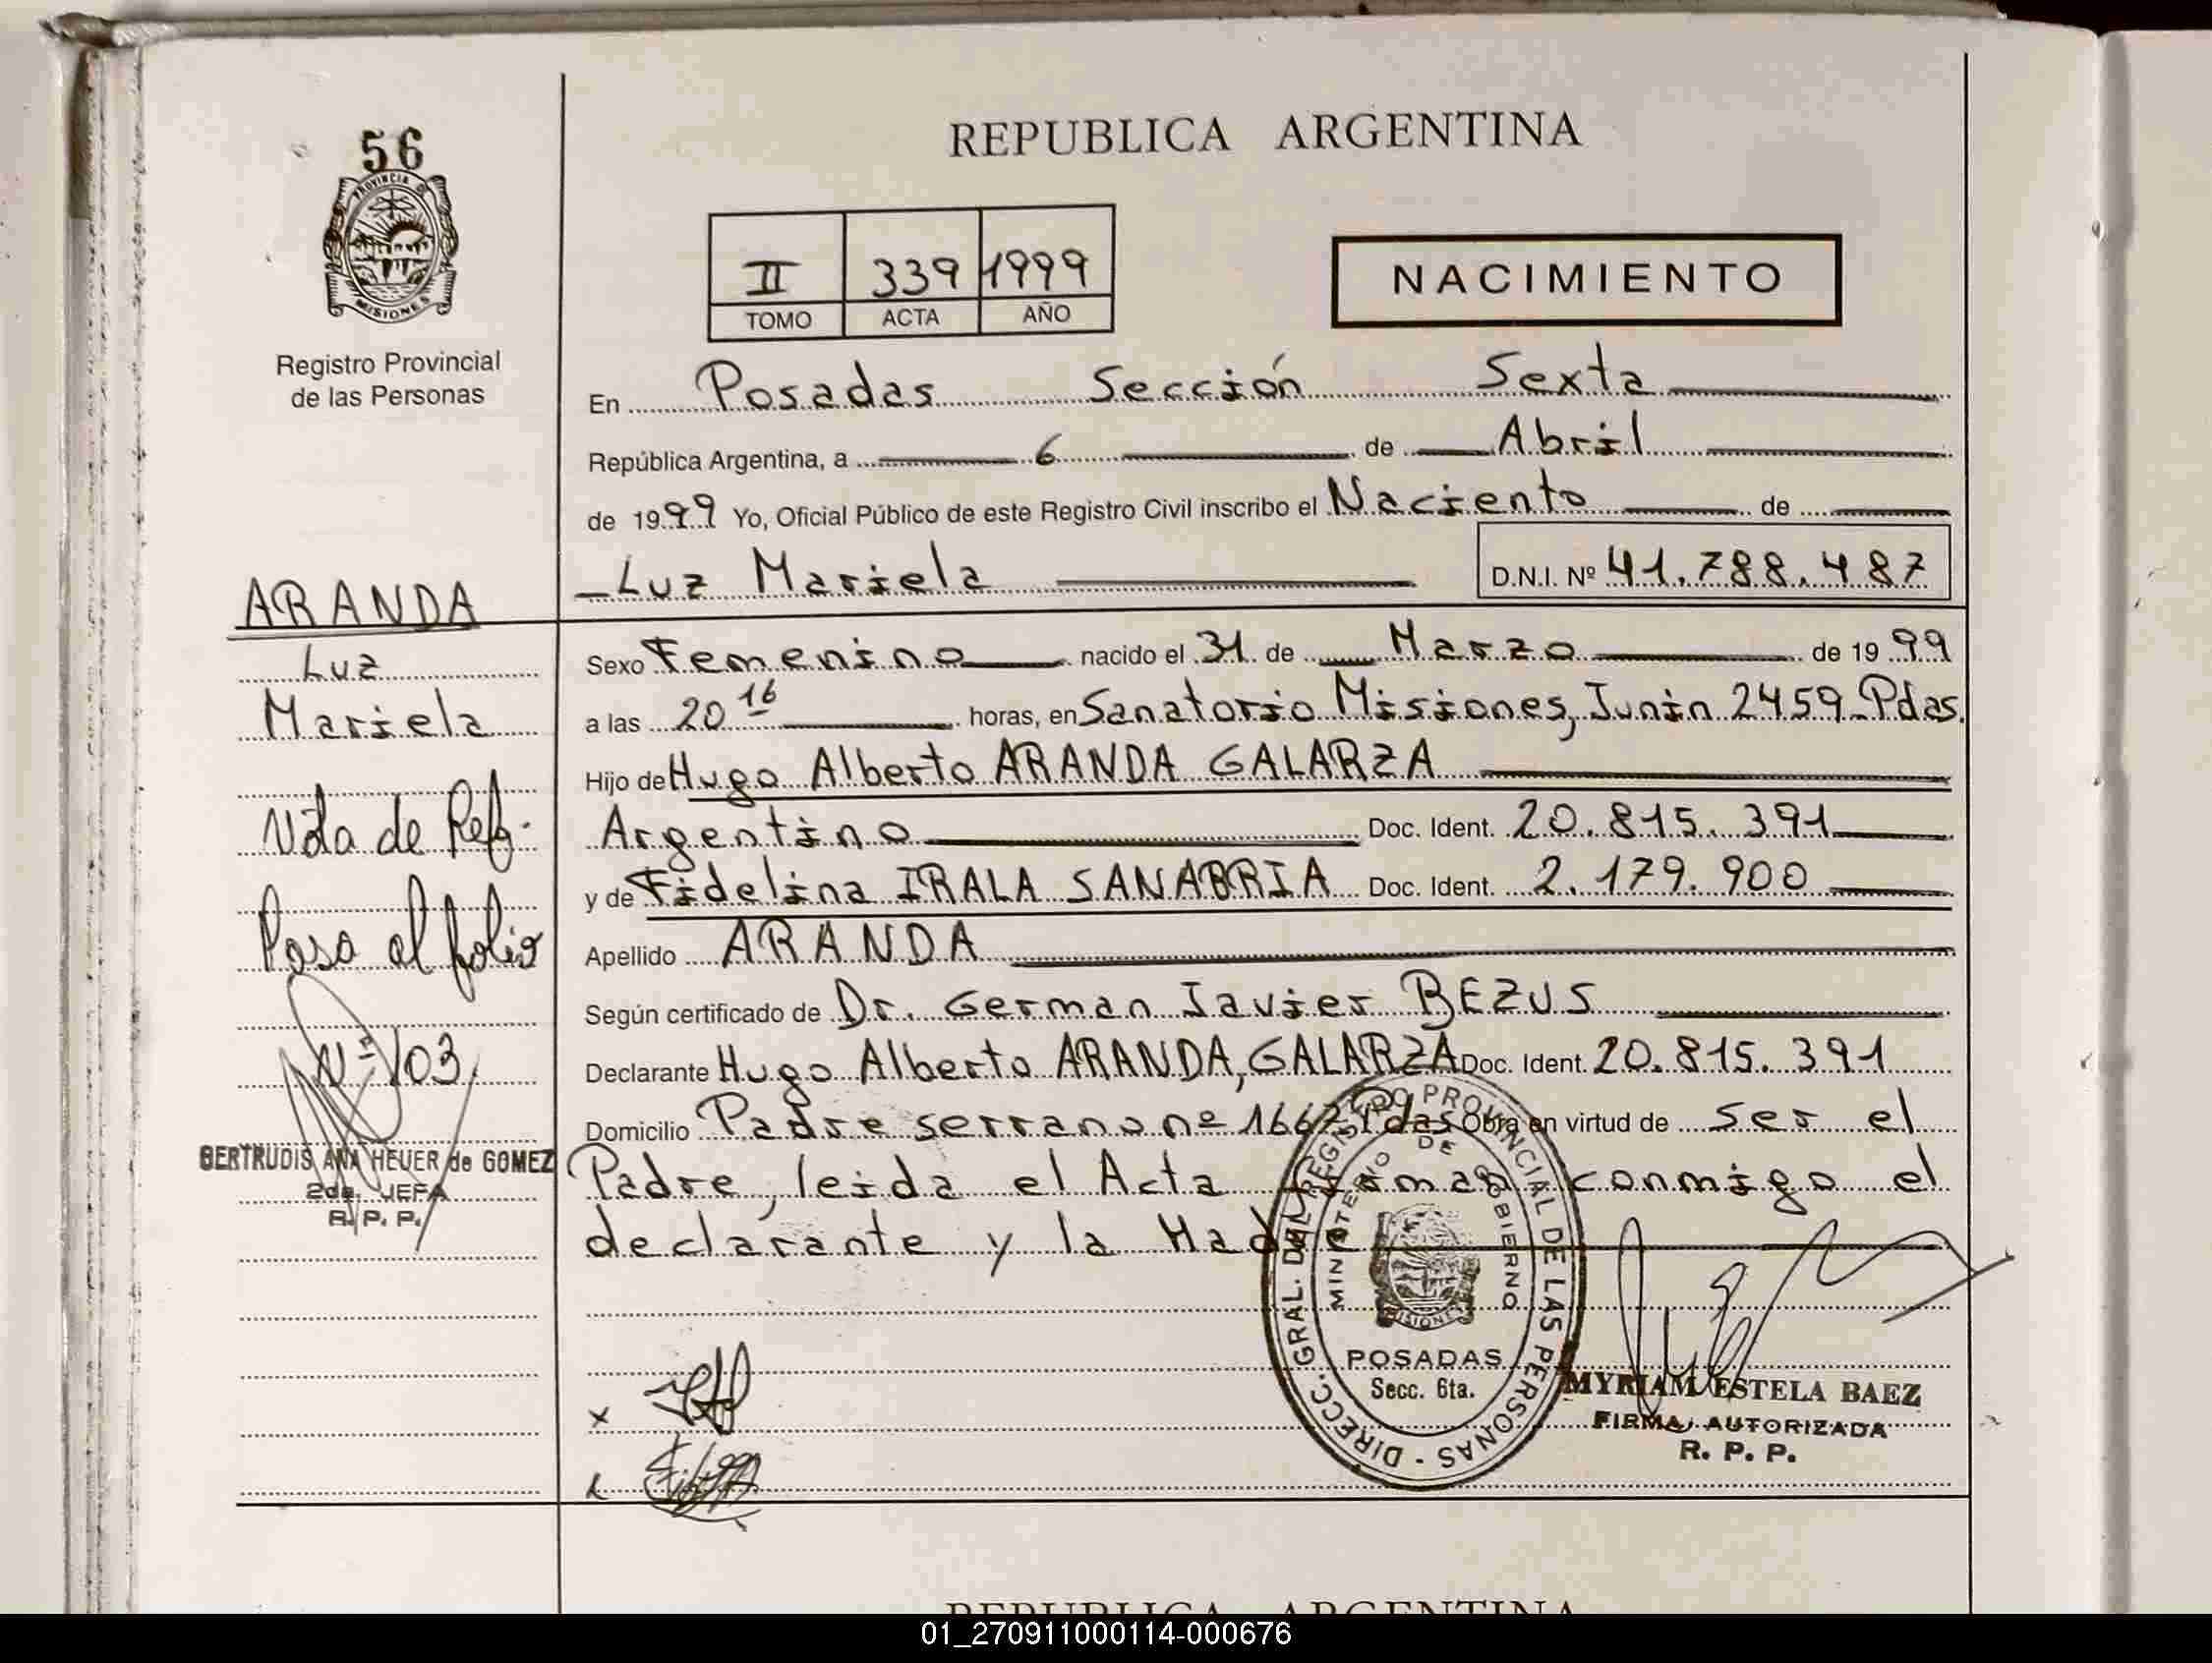 56
PROVINCIA DE
MISIONES
Registro Provincial
de las Personas
ARANDA
Luz
Mariela
Nota de Ref.
Pasa al folio
Nº 103
GERTRUDIS ANA HEUER de GOMEZ
2da. JEFA
R. P. P.
REPUBLICA ARGENTINA
II 339 1999
TOMO ACTA AÑO
NACIMIENTO
En Posadas Sección Sexta
República Argentina, a 6 de Abril
de 1999 Yo, Oficial Público de este Registro Civil inscribo el Naciento de
Luz Mariela D.N.I. Nº 41.788.487
Sexo Femenino nacido el 31 de Marzo de 1999
a las 20 16 horas, en Sanatorio Misiones, Junin 2459 Pdas.
Hijo de Hugo Alberto ARANDA GALARZA
Argentino Doc. Ident. 20.815.391
y de Fidelina IRALA SANABRIA Doc. Ident. 2.179.900
Apellido ARANDA
Según certificado de Dr. German Javier BEZUS
Declarante Hugo Alberto ARANDA, GALARZA Doc. Ident. 20.815.391
Domicilio Padre serrano nº Pdas Obra en virtud de ser el
Padre, leida el Acta firman conmigo el
declarante y la Madre
DIRECC. GRAL. DEL REGISTRO PROVINCIAL DE LAS PERSONAS
MINISTERIO DE GOBIERNO
MISIONES
POSADAS
Secc. 6ta.
MYRIAM ESTELA BAEZ
FIRMA AUTORIZADA
R. P. P.
REPUBLICA ARGENTINA
01_270911000114-000676